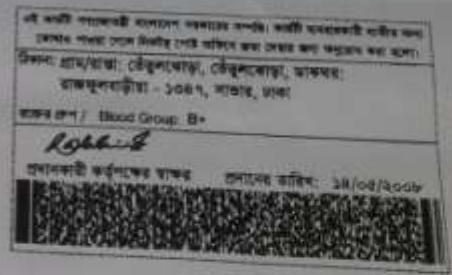 এই কার্ডটি গণপ্রজাতন্ত্রী বাংলাদেশ সরকারের সম্পত্তি। কার্ডটি ব্যবহারকারী ব্যতীত অন্য
কোথাও পাওয়া গেলে নিকটস্থ পোস্ট অফিসে জমা দেবার জন্য অনুরোধ করা হলো।
ঠিকানা: গ্রাম/রাস্তা: তেঁতুলঝোড়া, তেঁতুলঝোড়া, ডাকঘর:
রাজফুলবাড়ীয়া - ১৩৪৭, সাভার, ঢাকা
রক্তের গ্রুপ / Blood Group: B+
প্রদানকারী কর্তৃপক্ষের স্বাক্ষর প্রদানের তারিখ: ১৪/০৫/২০০৮